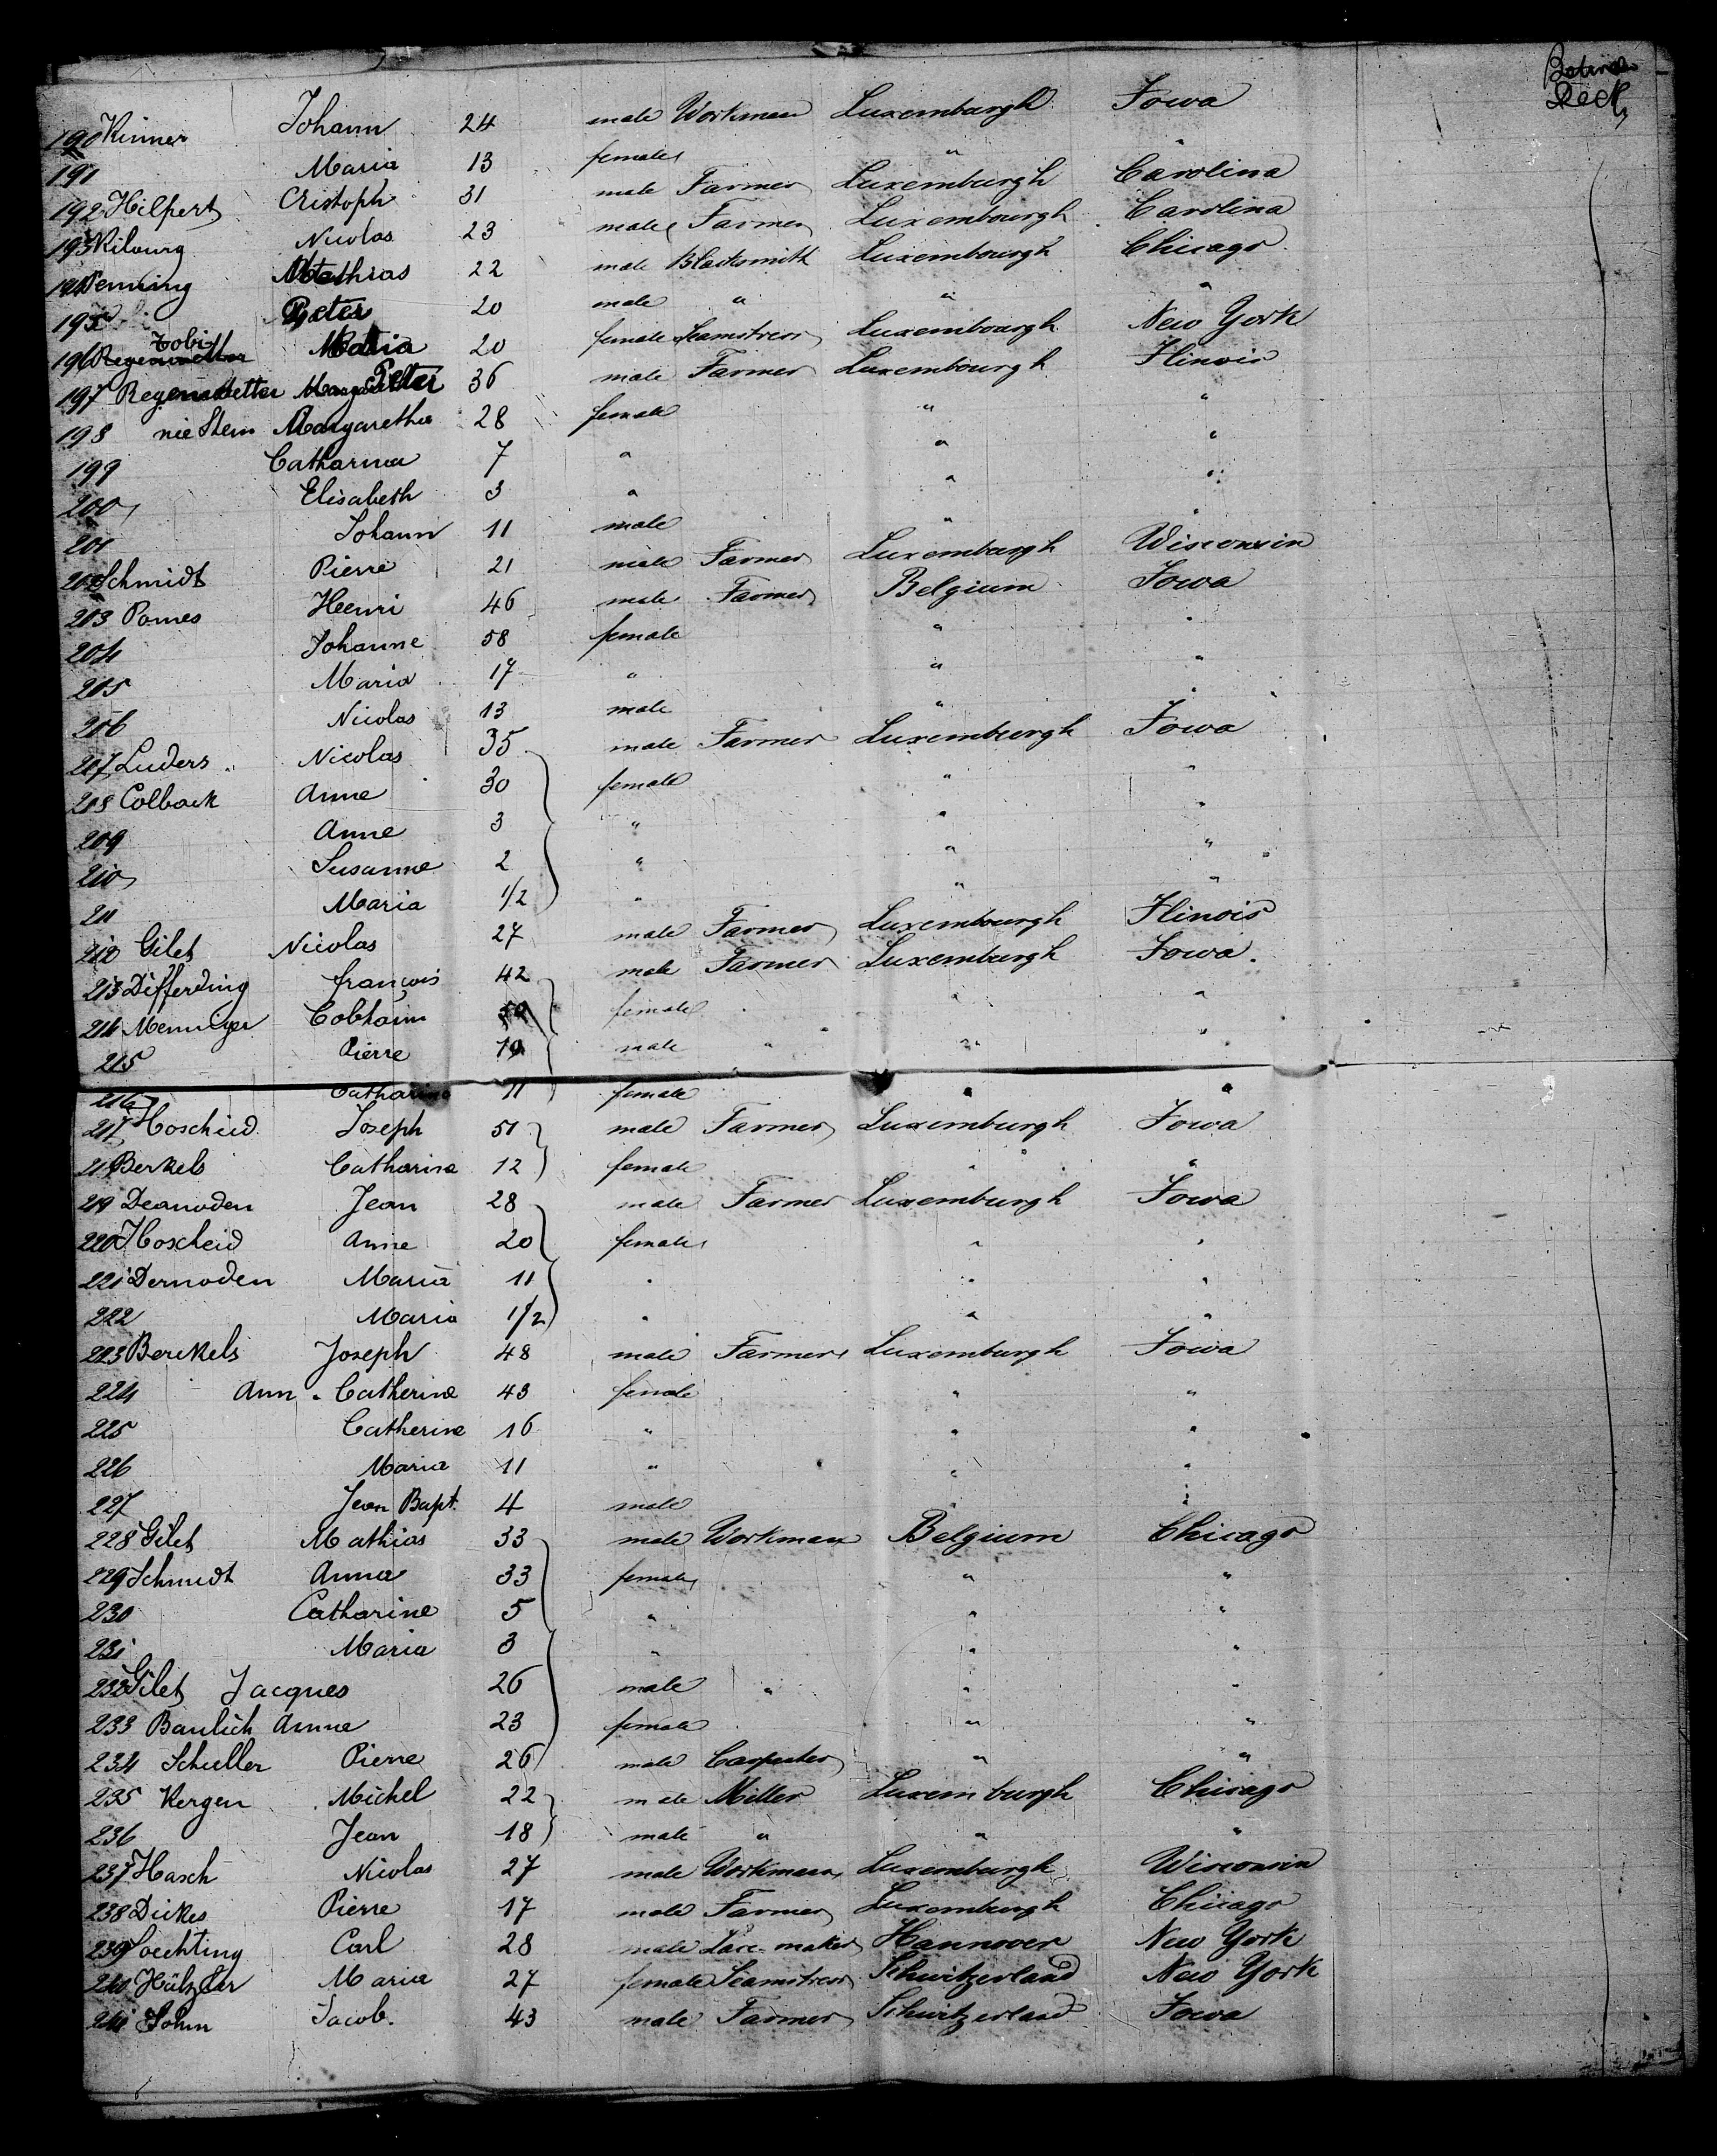 Between
Deck
190 Kinner Johann 24 male Workman Luxemburgh Iowa
191 Maria 13 female " "
192 Hilpert Cristoph 31 male Farmer Luxemburgh Carolina
193 Kilburg Nicolas 23 male Farmer Luxembourgh Carolina
194 Wenning Mathias 22 male Blacksmith Luxembourgh Chicago
195 Peter 20 male " " "
196 Tobis Maria 20 female Seamstress Luxembourgh New York
197 Regenwetter Peter 36 male Farmer Luxembourgh Ilinois
198 née Stein Margaretha 28 female " "
199 Catharina 7 " " "
200 Elisabeth 3 " " "
201 Johann 11 male " "
202 Schmidt Pierre 21 male Farmer Luxemburgh Wisconsin
203 Pomes Henri 46 male Farmer Belgium Iowa
204 Johanne 58 female " "
205 Maria 17 " " "
206 Nicolas 13 male " "
207 Luders Nicolas 35 male Farmer Luxemburgh Iowa
208 Colback Anne 30 female " "
209 Anne 3 " " "
210 Susanne 2 " " "
211 Maria 1/2 " " "
212 Gilet Nicolas 27 male Farmer Luxembourgh Ilinois
213 Differding françois 42 male Farmer Luxemburgh Iowa.
214 Menninger female " "
215 Pierre 19 male " " "
216 Catharina 11 female " "
217 Hoscheid Joseph 51 male Farmer Luxemburgh Iowa
218 Berkels Catharina 12 female " "
219 Dernoden Jean 28 male Farmer Luxemburgh Iowa
220 Hoscheid Anne 20 female " "
221 Dernoden Maria 11 " " "
222 Maria 1/2 " " "
223 Berckels Joseph 48 male Farmer Luxemburgh Iowa
224 Ann. Catherine 43 female " "
225 Catherine 16 " " "
226 Maria 11 " " "
227 Jean Bapt. 4 male " "
228 Gilet Mathias 33 male Workman Belgium Chicago
229 Schmidt Anna 33 female " "
230 Catharine 5 " " "
231 Maria 3 " " "
232 Gilet Jacques 26 male " " "
233 Baulich Anne 23 female " "
234 Schuller Pierre 26 male Carpenter " "
235 Kergen Michel 22 male Miller Luxemburgh Chicago
236 Jean 18 male " " "
237 Hasch Nicolas 27 male Workman Luxemburgh Wisconsin
238 Dickes Pierre 17 male Farmer Luxemburgh Chicago
239 Soechting Carl 28 male Lace-maker Hannover New York
240 Hälzler Maria 27 female Seamstress Schwitzerland New York
241 Sohm Jacob. 43 male Farmer Schwitzerland Iowa